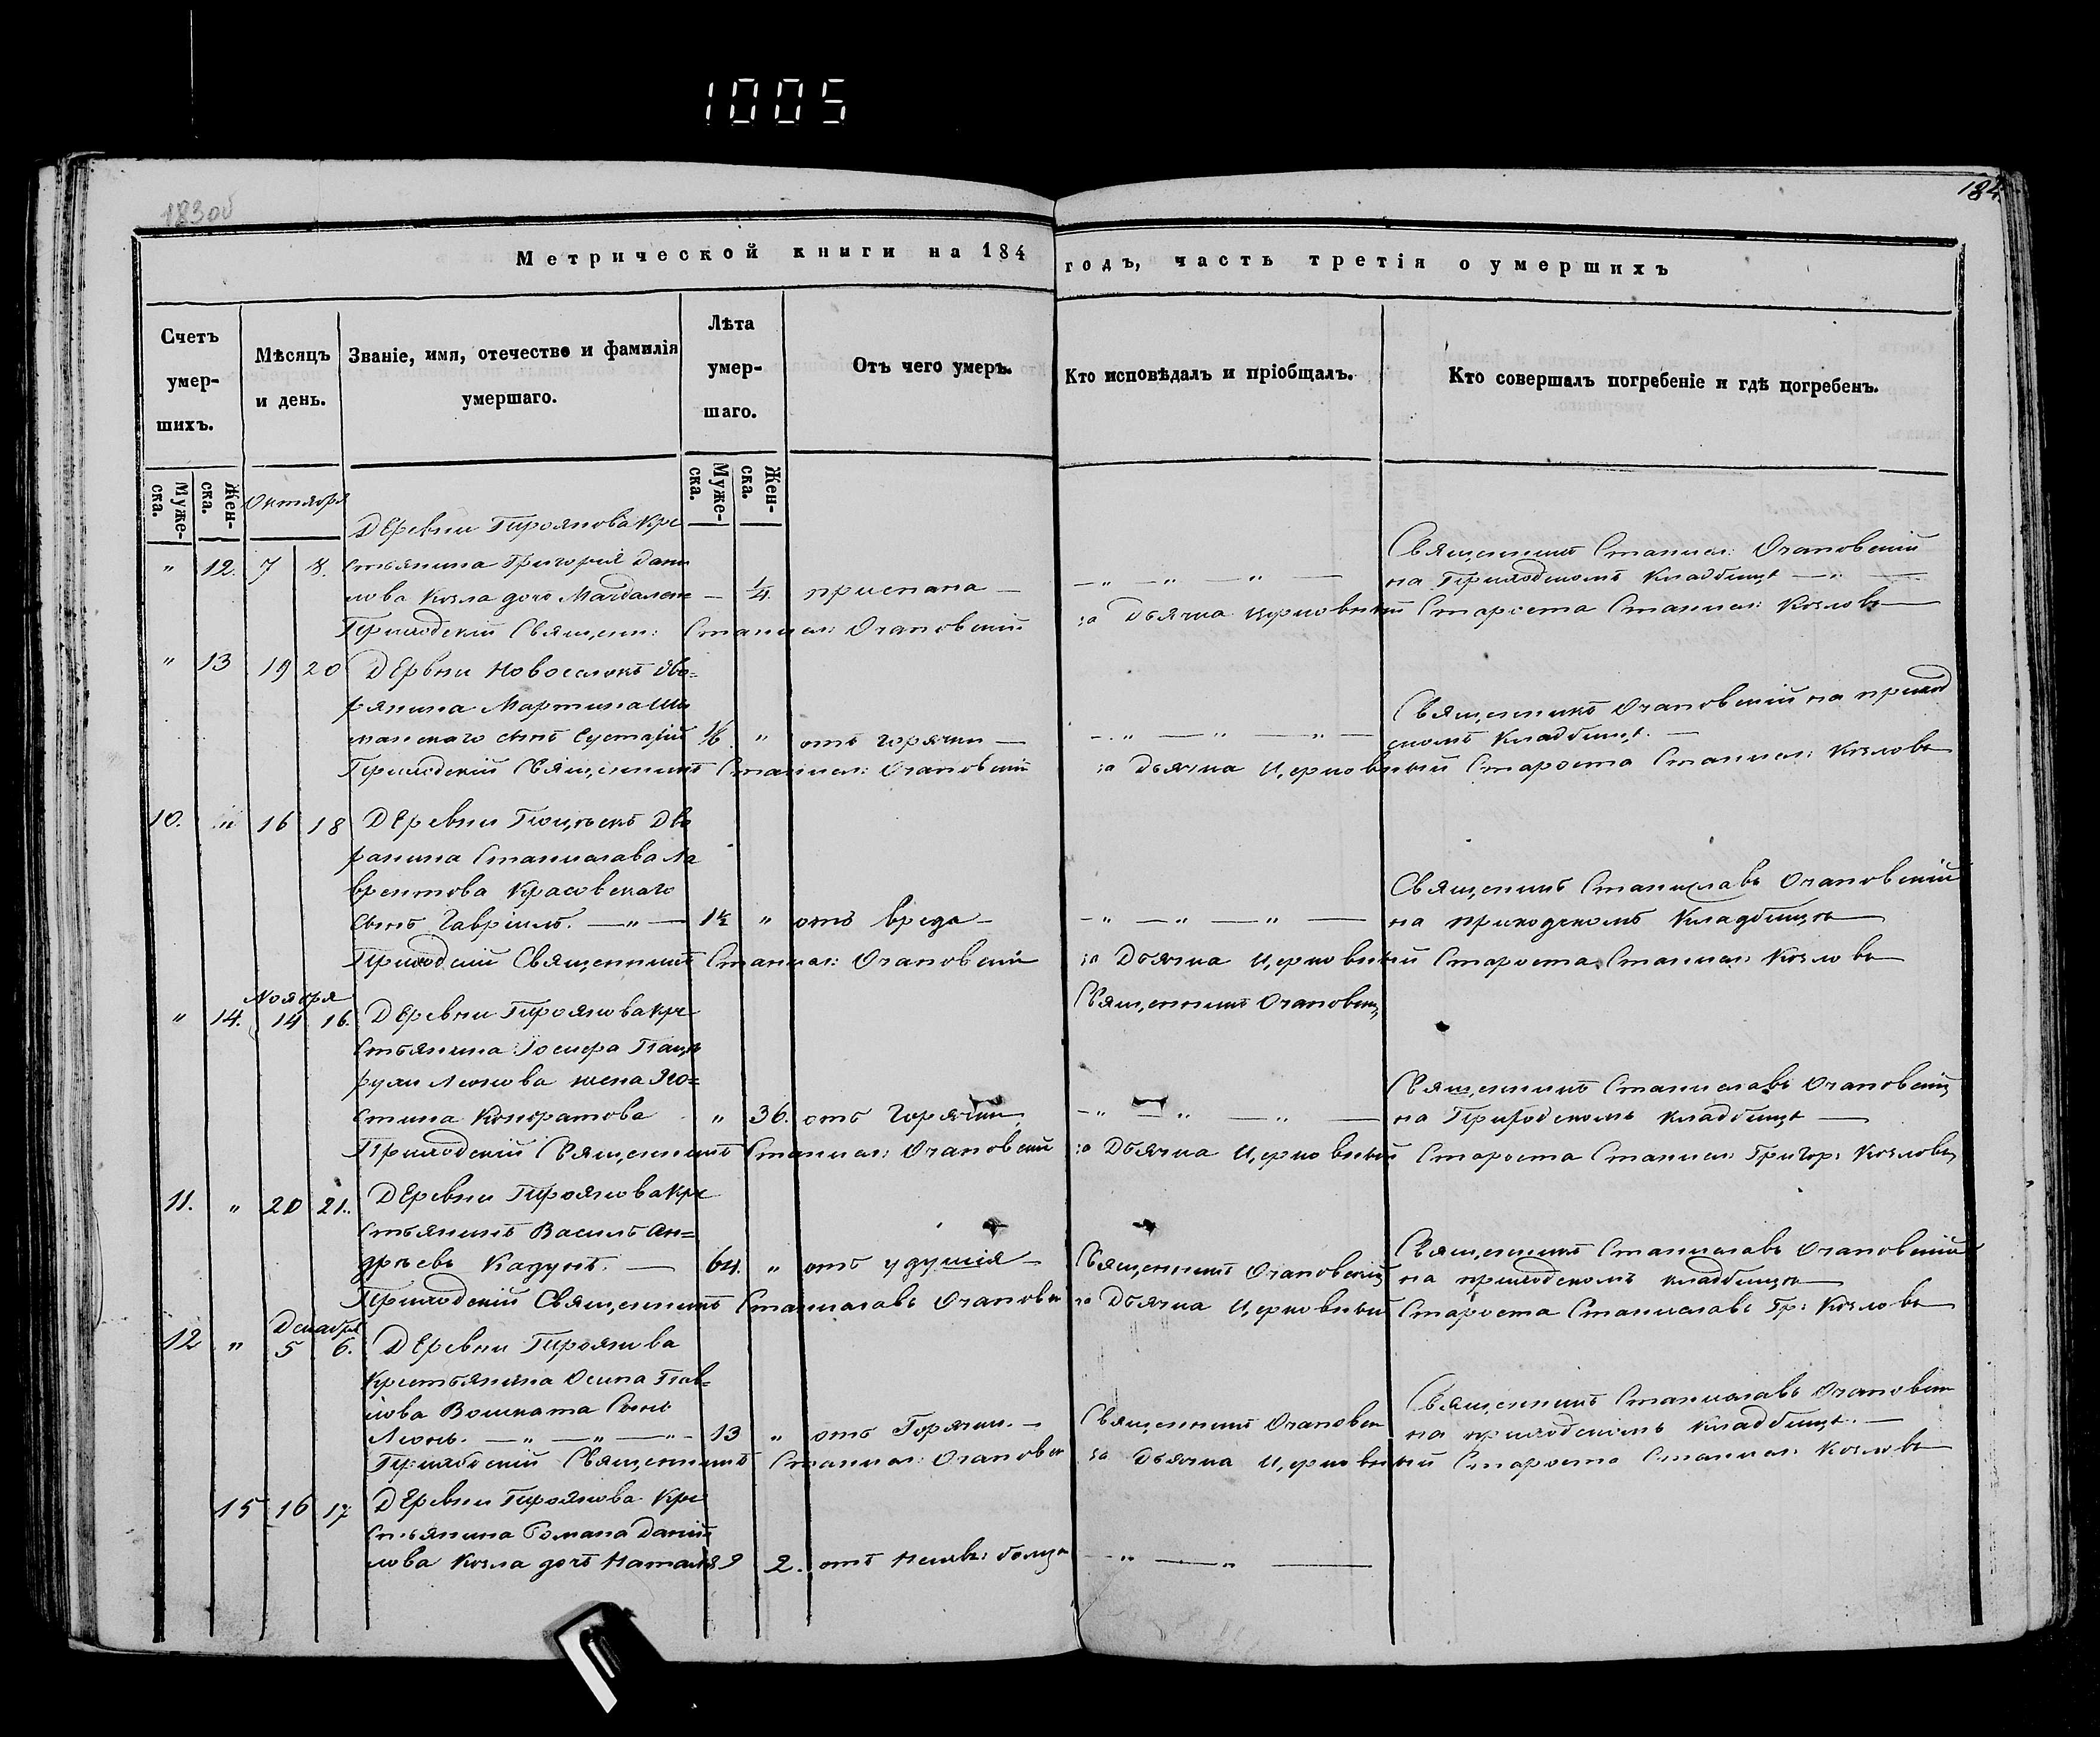 1005
183об
184
Метрической книги на 184 годъ, часть третія о умершихъ
Счетъ умер-шихъ.
Мѣсяцъ и день.
Званіе, имя, отечество и фамилія умершаго.
Лѣта умер-шаго.
Отъ чего умеръ.
Кто исповѣдалъ и пріобщалъ.
Кто совершалъ погребеніе и гдѣ погребенъ.
Муже-ска.
Жен-ска.
Муже-ска.
Жен-ска.
Октября
Деревни Пироянова Кре
" 12. 7 8. стьянина Григорія Дани
лова Козла дочь Магдалена — 1/4. приспана —
Священникъ Станисл: Очановскій
на Приходскомъ Кладбищѣ
Приходскій Священ: Станисл: Очановскій
за Дьячка Церковный Староста Станисл: Козловъ
" 13 19 20 Деревни Новоселокъ дво=
рянина Мартина
сынъ 1/6 " отъ горячки —
Священникъ Очановскій на приход
скомъ Кладбищѣ. —
Приходскій Священникъ Станисл: Очановскій
за Дьячка Церковный Староста Станисл: Козловъ
10. " 16 18 Деревни Дво
рянина Станислава Ла
врентова Красовскаго
сынъ Гавріилъ. — " — 1½ " отъ вреда —
Священникъ Станиславъ Очановскій
на приходскомъ Кладбищѣ —
Приходскій Священникъ Станисл: Очановскій
за Дьячка Церковный Староста Станисл: Козловъ
Ноября
" 14. 14 16. Деревни Пироянова Кре
стьянина Іосифа
Леонова жена Юо=
стина Кондратова " 36. отъ Горячки
Священникъ Очановскі
Священникъ Станиславъ Очановскій
на Приходскомъ Кладбищѣ —
Приходскій Священникъ Станисл: Очановскій
за Дьячка Церковный Староста Станисл: Григор: Козловъ
11. " 20 21. Деревни Пироянова Кре
стьянинъ Василь Ан=
дреевъ Кадунъ. — 64. " отъ удушія —
Священникъ Очановскій
Священникъ Станиславъ Очановскій
на приходскомъ кладбищѣ —
Приходскій Священникъ Станиславъ Очановск
за Дьячка Церковный Староста Станиславъ Гр: Козловъ
Декабря
12 " 5 6. Деревни Пироянова
Крестьянина Осипа Пав=
лова Сынъ
Леонъ. — " — " — " — 13 " отъ Горячки. —
Священникъ Очановск
Священникъ Станиславъ Очановск
на приходскомъ кладбищѣ. —
Приходскій Священникъ Станисл: Очановск
за Дьячка Церковный Староста Станисл: Козловъ
15 16 17 Деревни Пироянова Кре
стьянина Романа Даній
лова Козла дочь Наталія 2. отъ